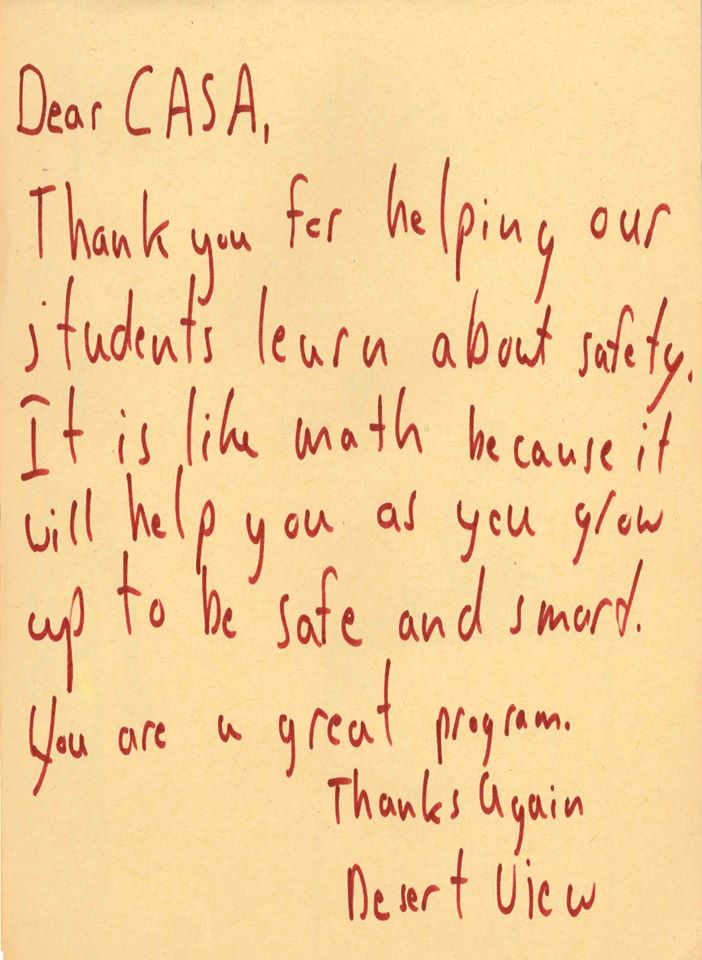 Dear CASA,
Thank you for helping our
students learn about safety.
It is like math because it
will help you as you grow
up to be safe and smart.
You are a great program.
Thanks Again
Desert View